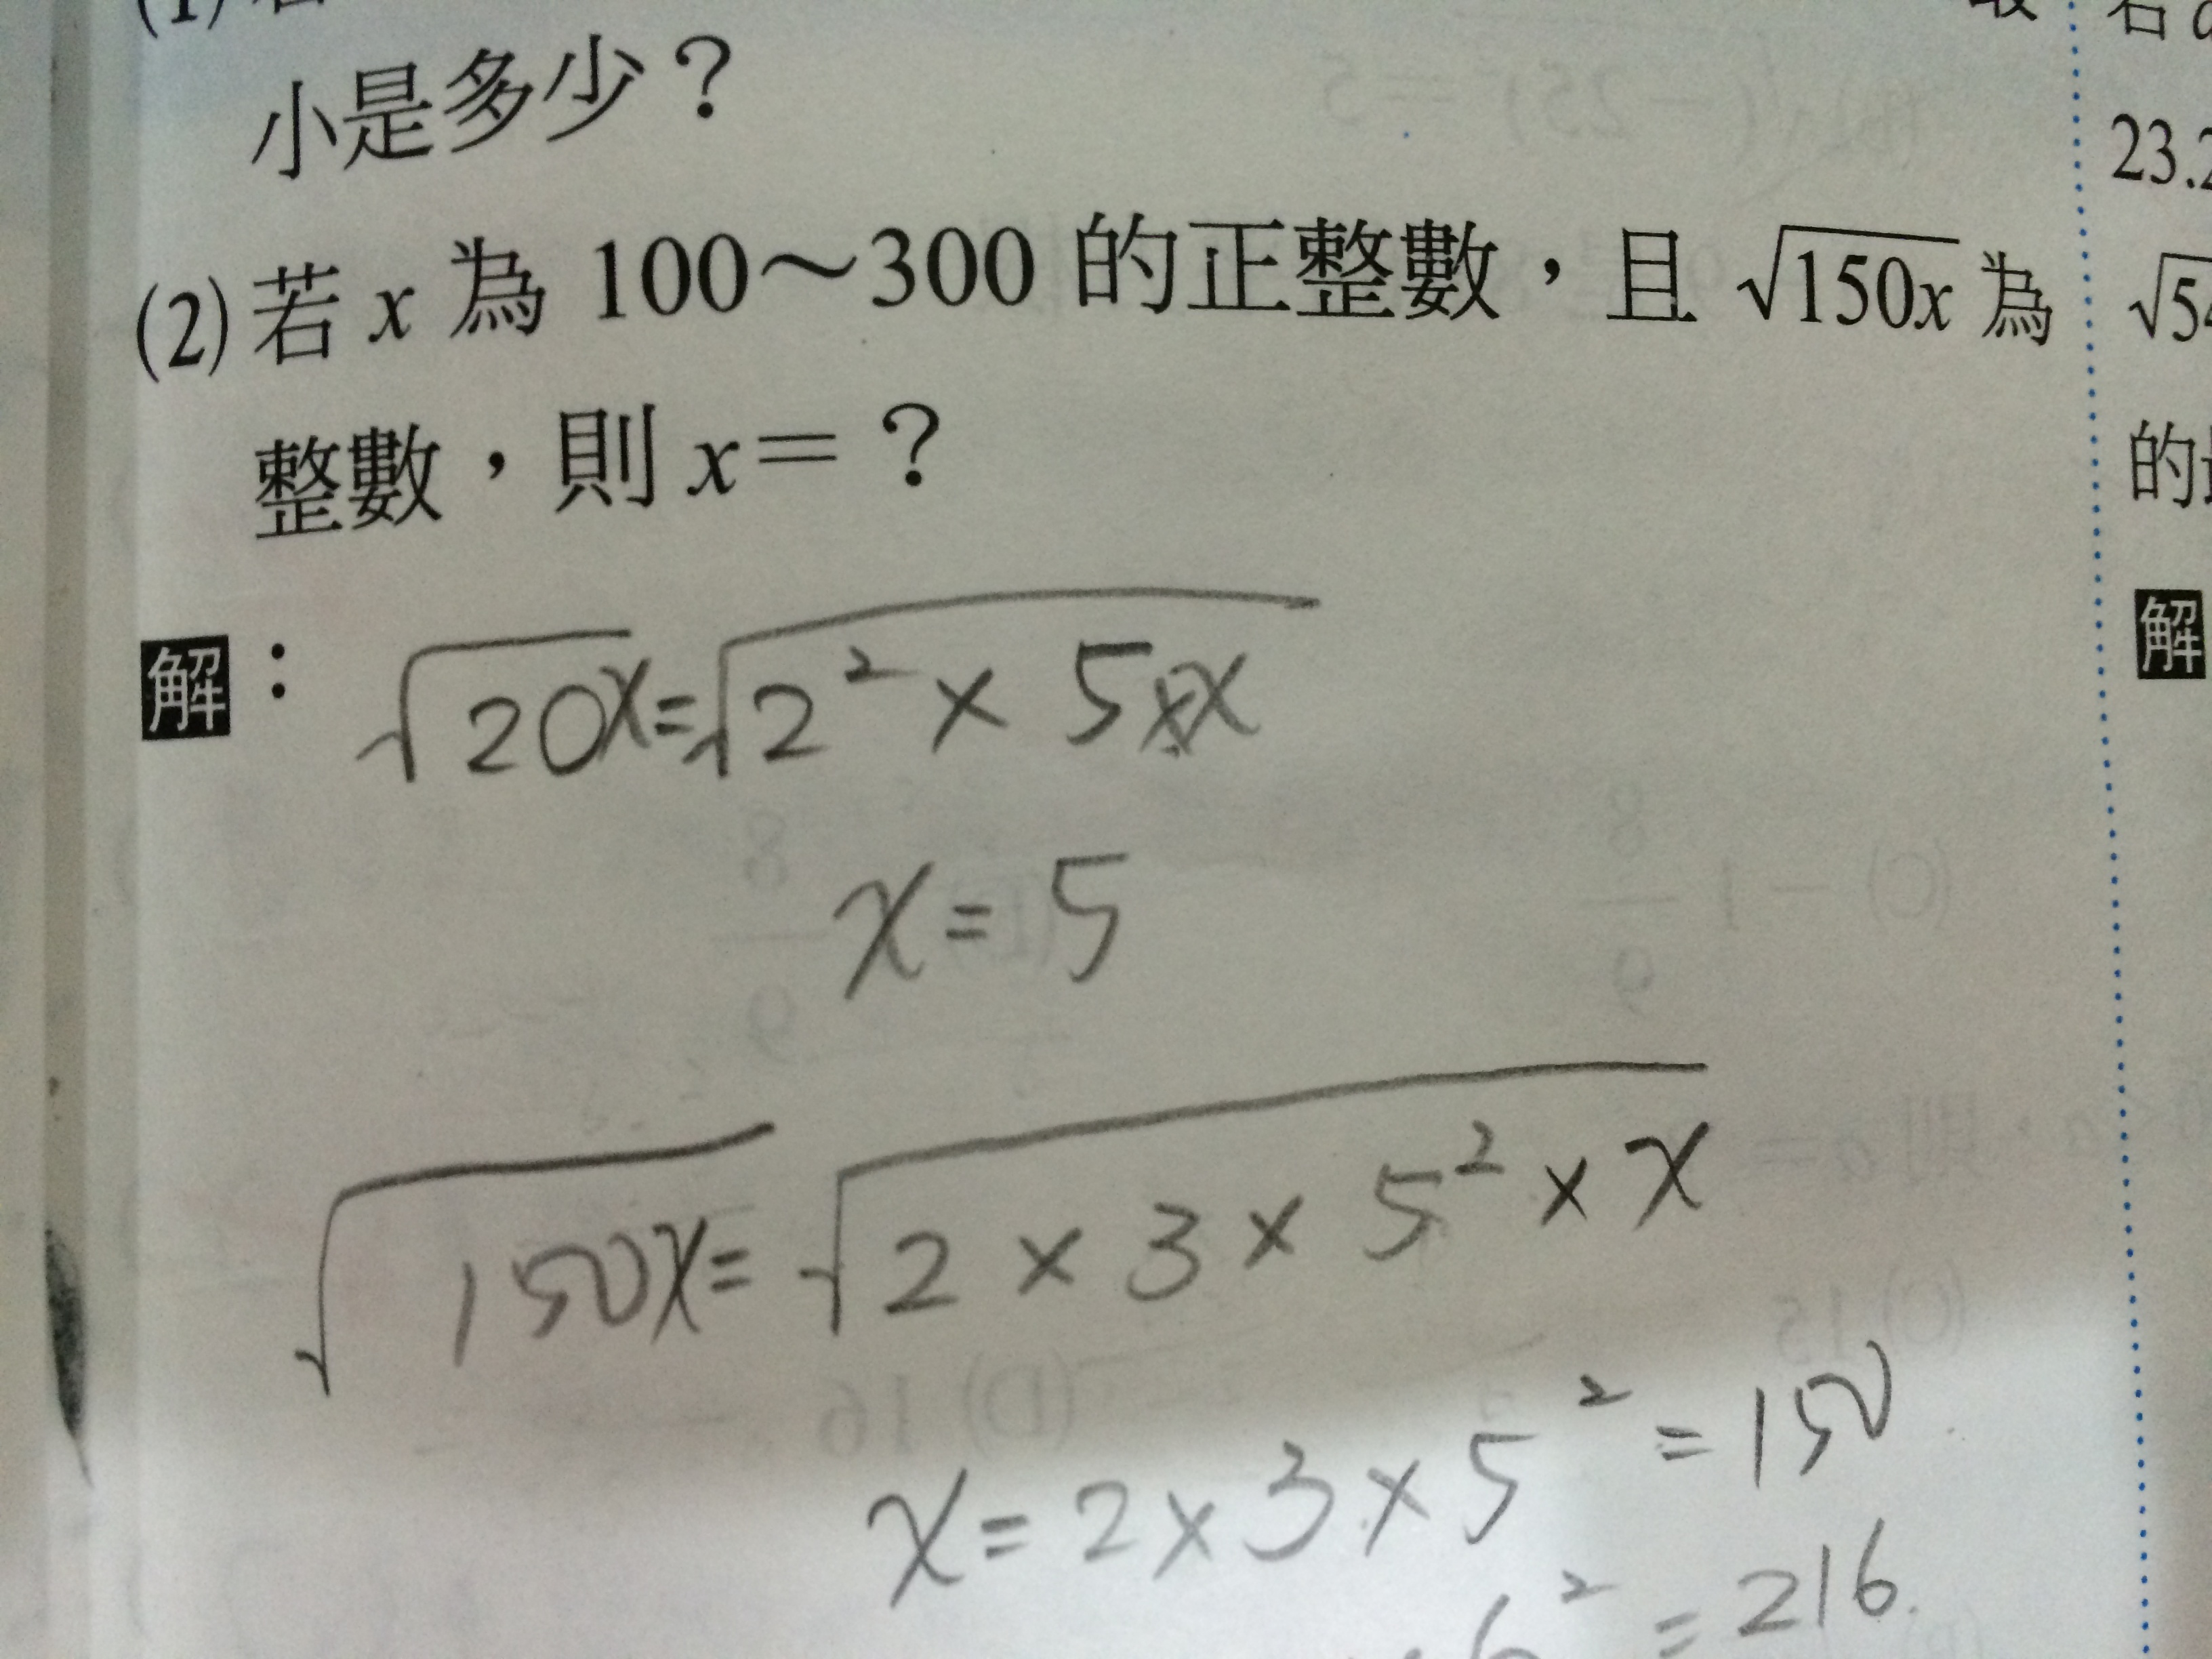 (1)
小是多少？
(2)若 x 為 100～300 的正整數，且 √150x 為
整數，則 x＝？
解：√20x=√2²×5×x
x=5
√150x=√2×3×5²×x
x=2×3×5²=150
6²=216
23.
√5
的
解